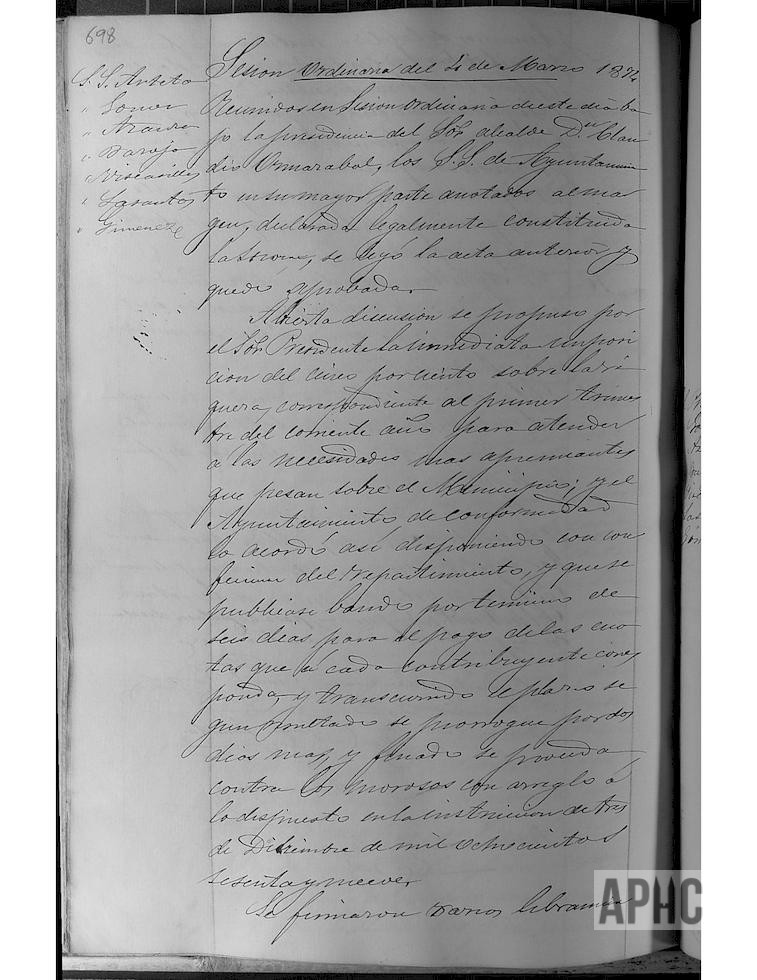 698
Sesion Ordinaria del 4 de Marzo 187
S. S. Arteta
" Gomez
"
" Baroja
"
" Lasantos
" Gimenez
Reunidos en Sesion ordinaria de este dia ba
jo la presidencia del Sor. alcalde Dn. Clau
dio Ormazabal, los S.S. de Ayuntamien
to en su mayor parte anotados al mar
gen, declarada legalmente constituida
la sesion, se leyó la acta anterior y
quedó aprobada.
Abierta discusion se propuso por
el Sor. Presidente la inmediata imposi
cion del cinco por ciento sobre la ri
queza, correspondiente al primer trimes
tre del corriente año para atender
a las necesidades mas apremiantes
que pesan sobre el Municipio; y el
Ayuntamiento de conformidad
lo acordó así disponiendo la con
feccion del repartimiento, y que se
publicase bando por termino de
seis dias para el pago de las cuo
tas que á cada contribuyente corres
ponda, y transcurrido el plazo se
gun resultado se prorrogue por dos
dias mas, y finado se proceda
contra los morosos con arreglo á
lo dispuesto en la instruccion de tres
de Diciembre de mil ochocientos
sesenta y nueve.
Se firmaron varios libramien
APHC